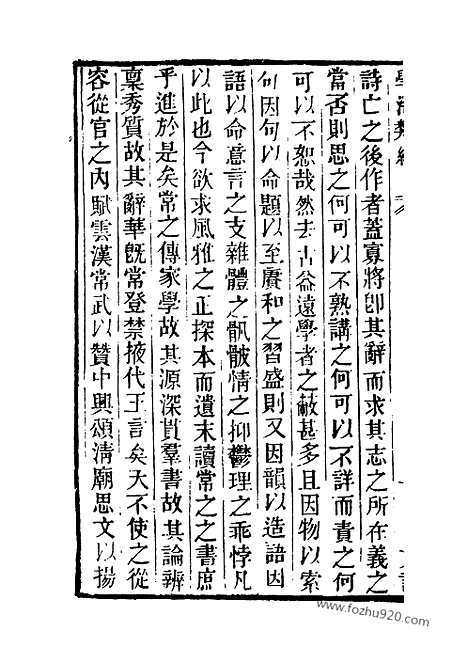 學海類編
詩亡之後作者蓋寡將卽其辭而求其志之所在義之
當否則思之何可以不熟講之何可以不詳而責之何
可以不恕哉然去古益遠學者之蔽甚多且因物以索
句因句以命題以至賡和之習盛則又因韻以造語因
語以命意言之支雜體之骫骳情之抑鬱理之乖悖凡
以此也今欲求風雅之正探本而遺末讀常之之書庶
乎進於是矣常之傳家學故其源深貫羣書故其論辨
稟秀質故其辭華旣常登禁掖代王言矣天不使之從
容從官之內賦雲漢常武以贊中興頌清廟思文以揚
www.fozhu920.com